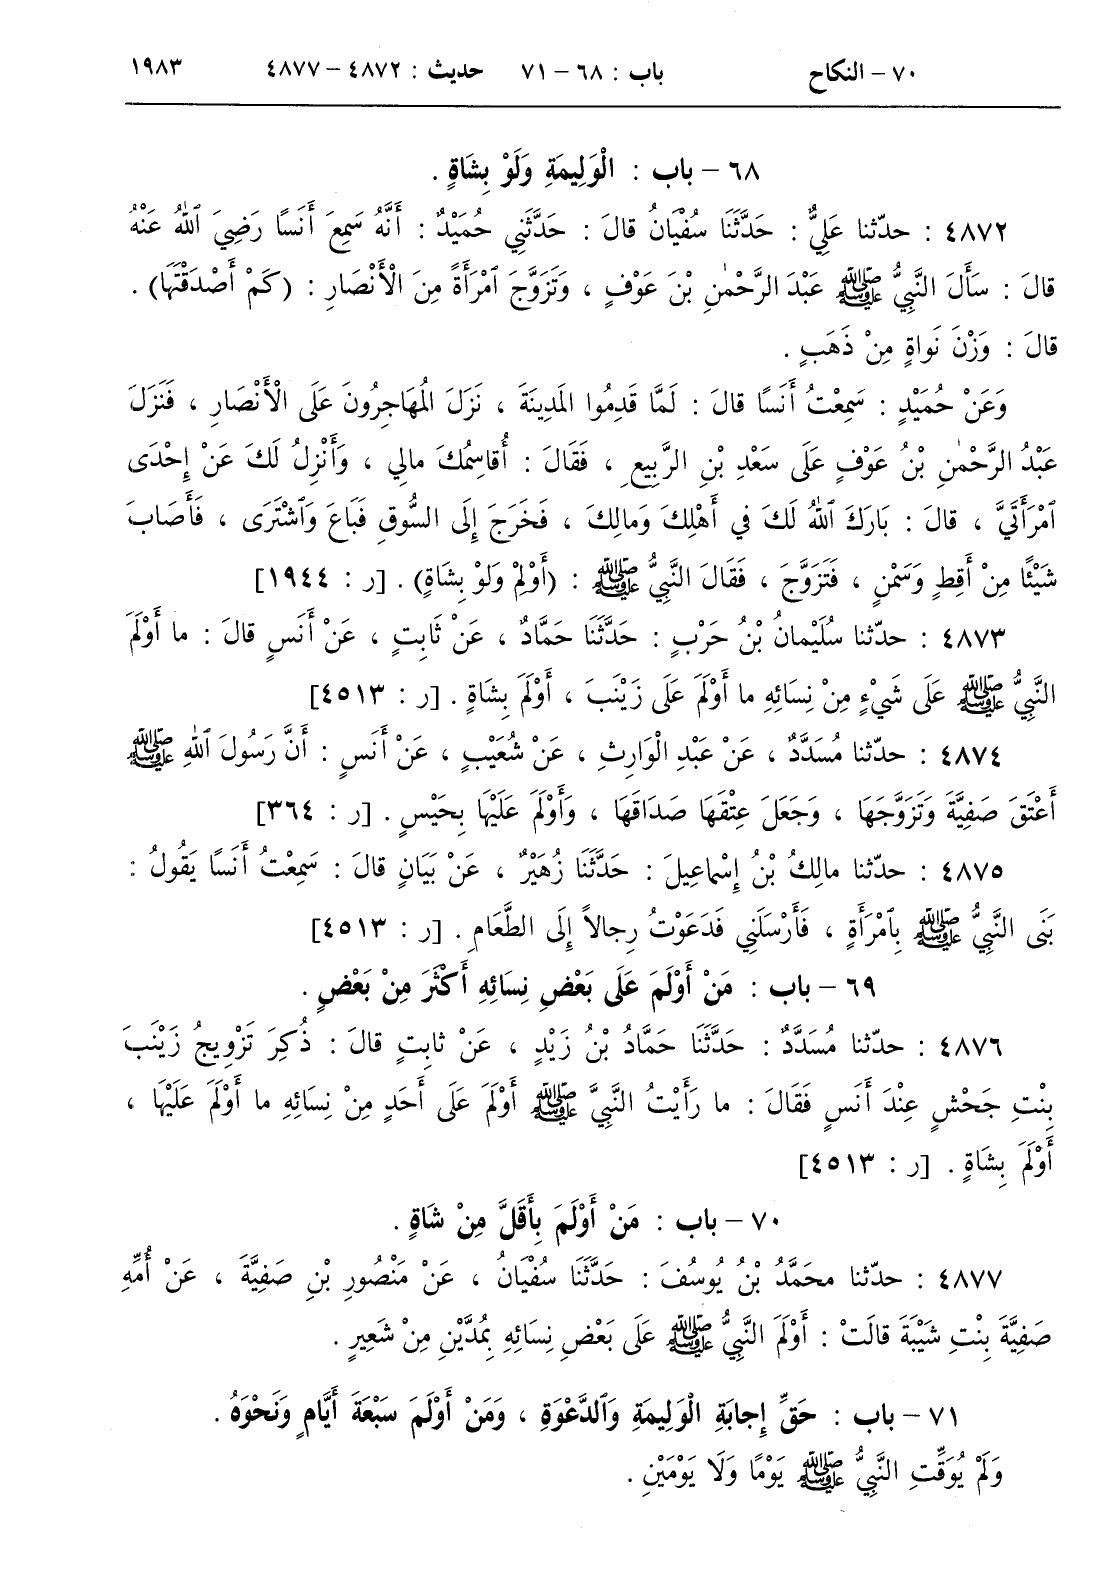 ٧٠ – النكاح باب : ٦٨ – ٧١ حديث : ٤٨٧٢ – ٤٨٧٧ ١٩٨٣
٦٨ – باب : الْوَلِيمَةِ وَلَوْ بِشَاةٍ .
٤٨٧٢ : حدّثنا عَلِيٌّ : حَدَّثَنَا سُفْيَانُ قالَ : حَدَّثَنِي حُمَيْدٌ : أَنَّهُ سَمِعَ أَنَسًا رَضِيَ ٱللهُ عَنْهُ
قالَ : سَأَلَ النَّبِيُّ ﷺ عَبْدَ الرَّحْمٰنِ بْنَ عَوْفٍ ، وَتَزَوَّجَ ٱمْرَأَةً مِنَ الْأَنْصَارِ : (كَمْ أَصْدَقْتَهَا) .
قالَ : وَزْنَ نَواةٍ مِنْ ذَهَبٍ .
وَعَنْ حُمَيْدٍ : سَمِعْتُ أَنَسًا قالَ : لَمَّا قَدِمُوا المَدِينَةَ ، نَزَلَ المُهَاجِرُونَ عَلَى الْأَنْصَارِ ، فَنَزَلَ
عَبْدُ الرَّحْمٰنِ بْنُ عَوْفٍ عَلَى سَعْدِ بْنِ الرَّبِيعِ ، فَقَالَ : أُقاسِمُكَ مالِي ، وَأَنْزِلُ لَكَ عَنْ إِحْدَى
ٱمْرَأَتَيَّ ، قالَ : بَارَكَ ٱللهُ لَكَ في أَهْلِكَ وَمالِكَ ، فَخَرَجَ إِلَى السُّوقِ فَبَاعَ وَٱشْتَرَى ، فَأَصَابَ
شَيْئًا مِنْ أَقِطٍ وَسَمْنٍ ، فَتَزَوَّجَ ، فَقَالَ النَّبِيُّ ﷺ : (أَوْلِمْ وَلَوْ بِشَاةٍ) . [ر : ١٩٤٤]
٤٨٧٣ : حدّثنا سُلَيْمانُ بْنُ حَرْبٍ : حَدَّثَنَا حَمَّادٌ ، عَنْ ثَابِتٍ ، عَنْ أَنَسٍ قالَ : ما أَوْلَمَ
النَّبِيُّ ﷺ عَلَى شَيْءٍ مِنْ نِسَائِهِ ما أَوْلَمَ عَلَى زَيْنَبَ ، أَوْلَمَ بِشَاةٍ . [ر : ٤٥١٣]
٤٨٧٤ : حدّثنا مُسَدَّدٌ ، عَنْ عَبْدِ الْوَارِثِ ، عَنْ شُعَيْبٍ ، عَنْ أَنَسٍ : أَنَّ رَسُولَ ٱللهِ ﷺ
أَعْتَقَ صَفِيَّةَ وَتَزَوَّجَهَا ، وَجَعَلَ عِتْقَهَا صَدَاقَهَا ، وَأَوْلَمَ عَلَيْهَا بِحَيْسٍ . [ر : ٣٦٤]
٤٨٧٥ : حدّثنا مالِكُ بْنُ إِسْماعِيلَ : حَدَّثَنَا زُهَيْرٌ ، عَنْ بَيَانٍ قالَ : سَمِعْتُ أَنَسًا يَقُولُ :
بَنَى النَّبِيُّ ﷺ بِٱمْرَأَةٍ ، فَأَرْسَلَنِي فَدَعَوْتُ رِجالاً إِلَى الطَّعَامِ . [ر : ٤٥١٣]
٦٩ – باب : مَنْ أَوْلَمَ عَلَى بَعْضِ نِسَائِهِ أَكْثَرَ مِنْ بَعْضٍ .
٤٨٧٦ : حدّثنا مُسَدَّدٌ : حَدَّثَنَا حَمَّادُ بْنُ زَيْدٍ ، عَنْ ثابِتٍ قالَ : ذُكِرَ تَزْوِيجُ زَيْنَبَ
بِنْتِ جَحْشٍ عِنْدَ أَنَسٍ فَقَالَ : ما رَأَيْتُ النَّبِيَّ ﷺ أَوْلَمَ عَلَى أَحَدٍ مِنْ نِسَائِهِ ما أَوْلَمَ عَلَيْهَا ،
أَوْلَمَ بِشَاةٍ . [ر : ٤٥١٣]
٧٠ – باب : مَنْ أَوْلَمَ بِأَقَلَّ مِنْ شَاةٍ .
٤٨٧٧ : حدّثنا محَمَّدُ بْنُ يُوسُفَ : حَدَّثَنَا سُفْيَانُ ، عَنْ مَنْصُورِ بْنِ صَفِيَّةَ ، عَنْ أُمِّهِ
صَفِيَّةَ بِنْتِ شَيْبَةَ قالَتْ : أَوْلَمَ النَّبِيُّ ﷺ عَلَى بَعْضِ نِسَائِهِ بِمُدَّيْنِ مِنْ شَعِيرٍ .
٧١ – باب : حَقِّ إِجابَةِ الْوَلِيمَةِ وَٱلدَّعْوَةِ ، وَمَنْ أَوْلَمَ سَبْعَةَ أَيَّامٍ وَنَحْوَهُ .
وَلَمْ يُوَقِّتِ النَّبِيُّ ﷺ يَوْمًا وَلَا يَوْمَيْنِ .